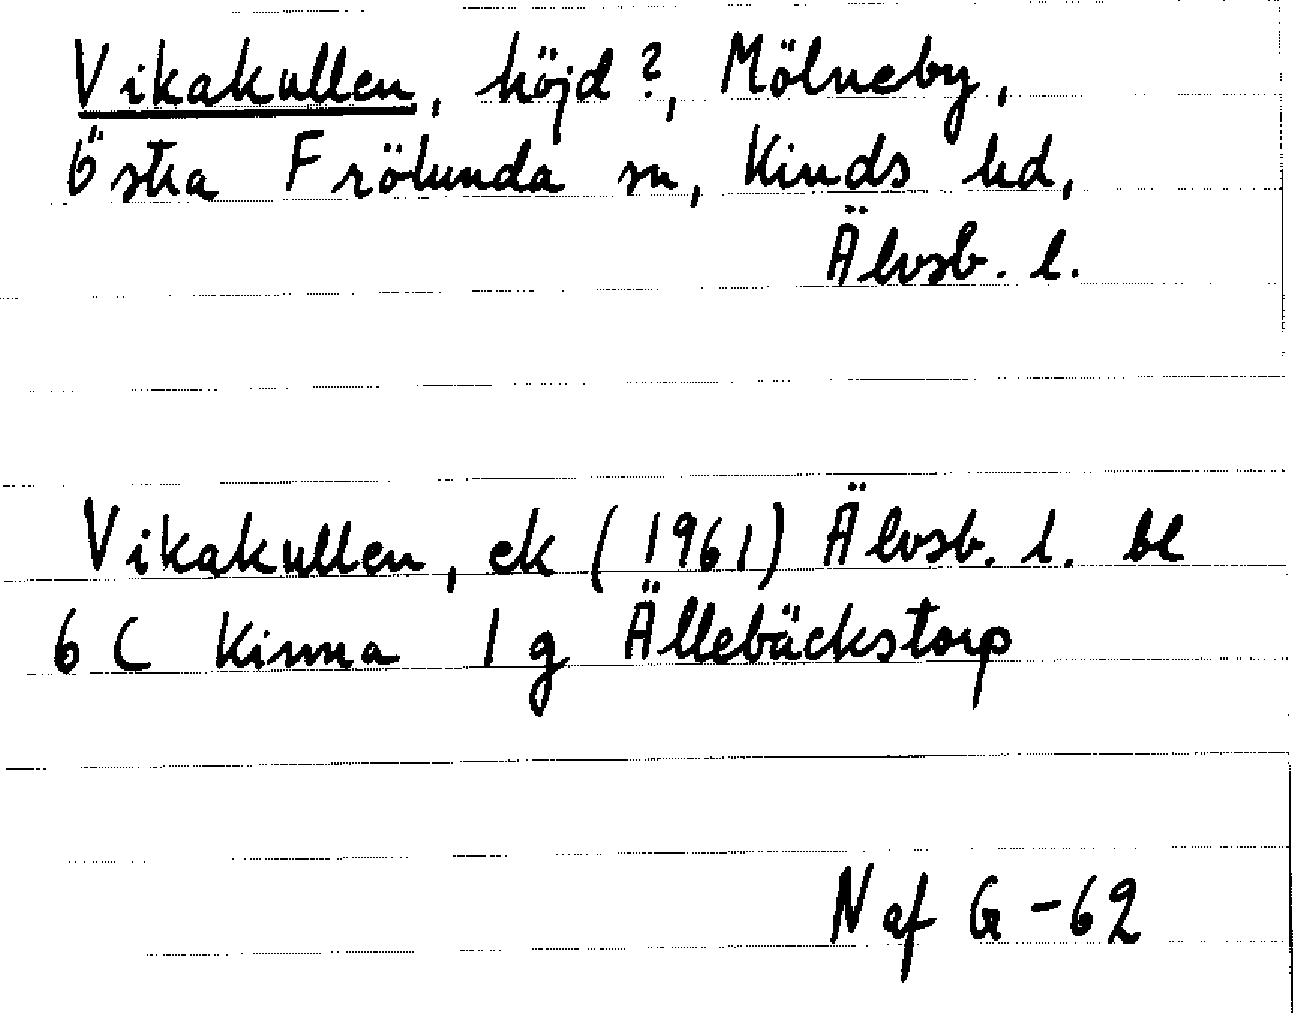 Vikakullen, höjd?, Mölneby,
Östra Frölunda sn, Kinds hd,
Älvsb. l.
Vikakullen, ek (1961) Älvsb. l. bl
6 C Kinna 1 g Ällebäckstorp
N af G -62